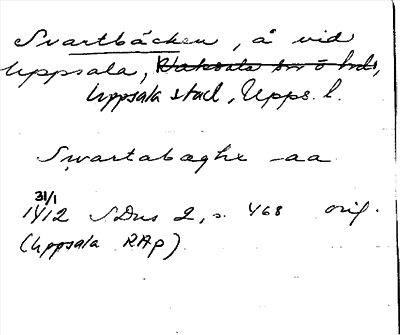 Svartbäcken, å vid
Uppsala, Vaksala sn o hd,
Uppsala stad, Upps. l.
Swartabæghx -aa
31/1
1412 SDns 2, s. 468 orig.
(Uppsala RAp)